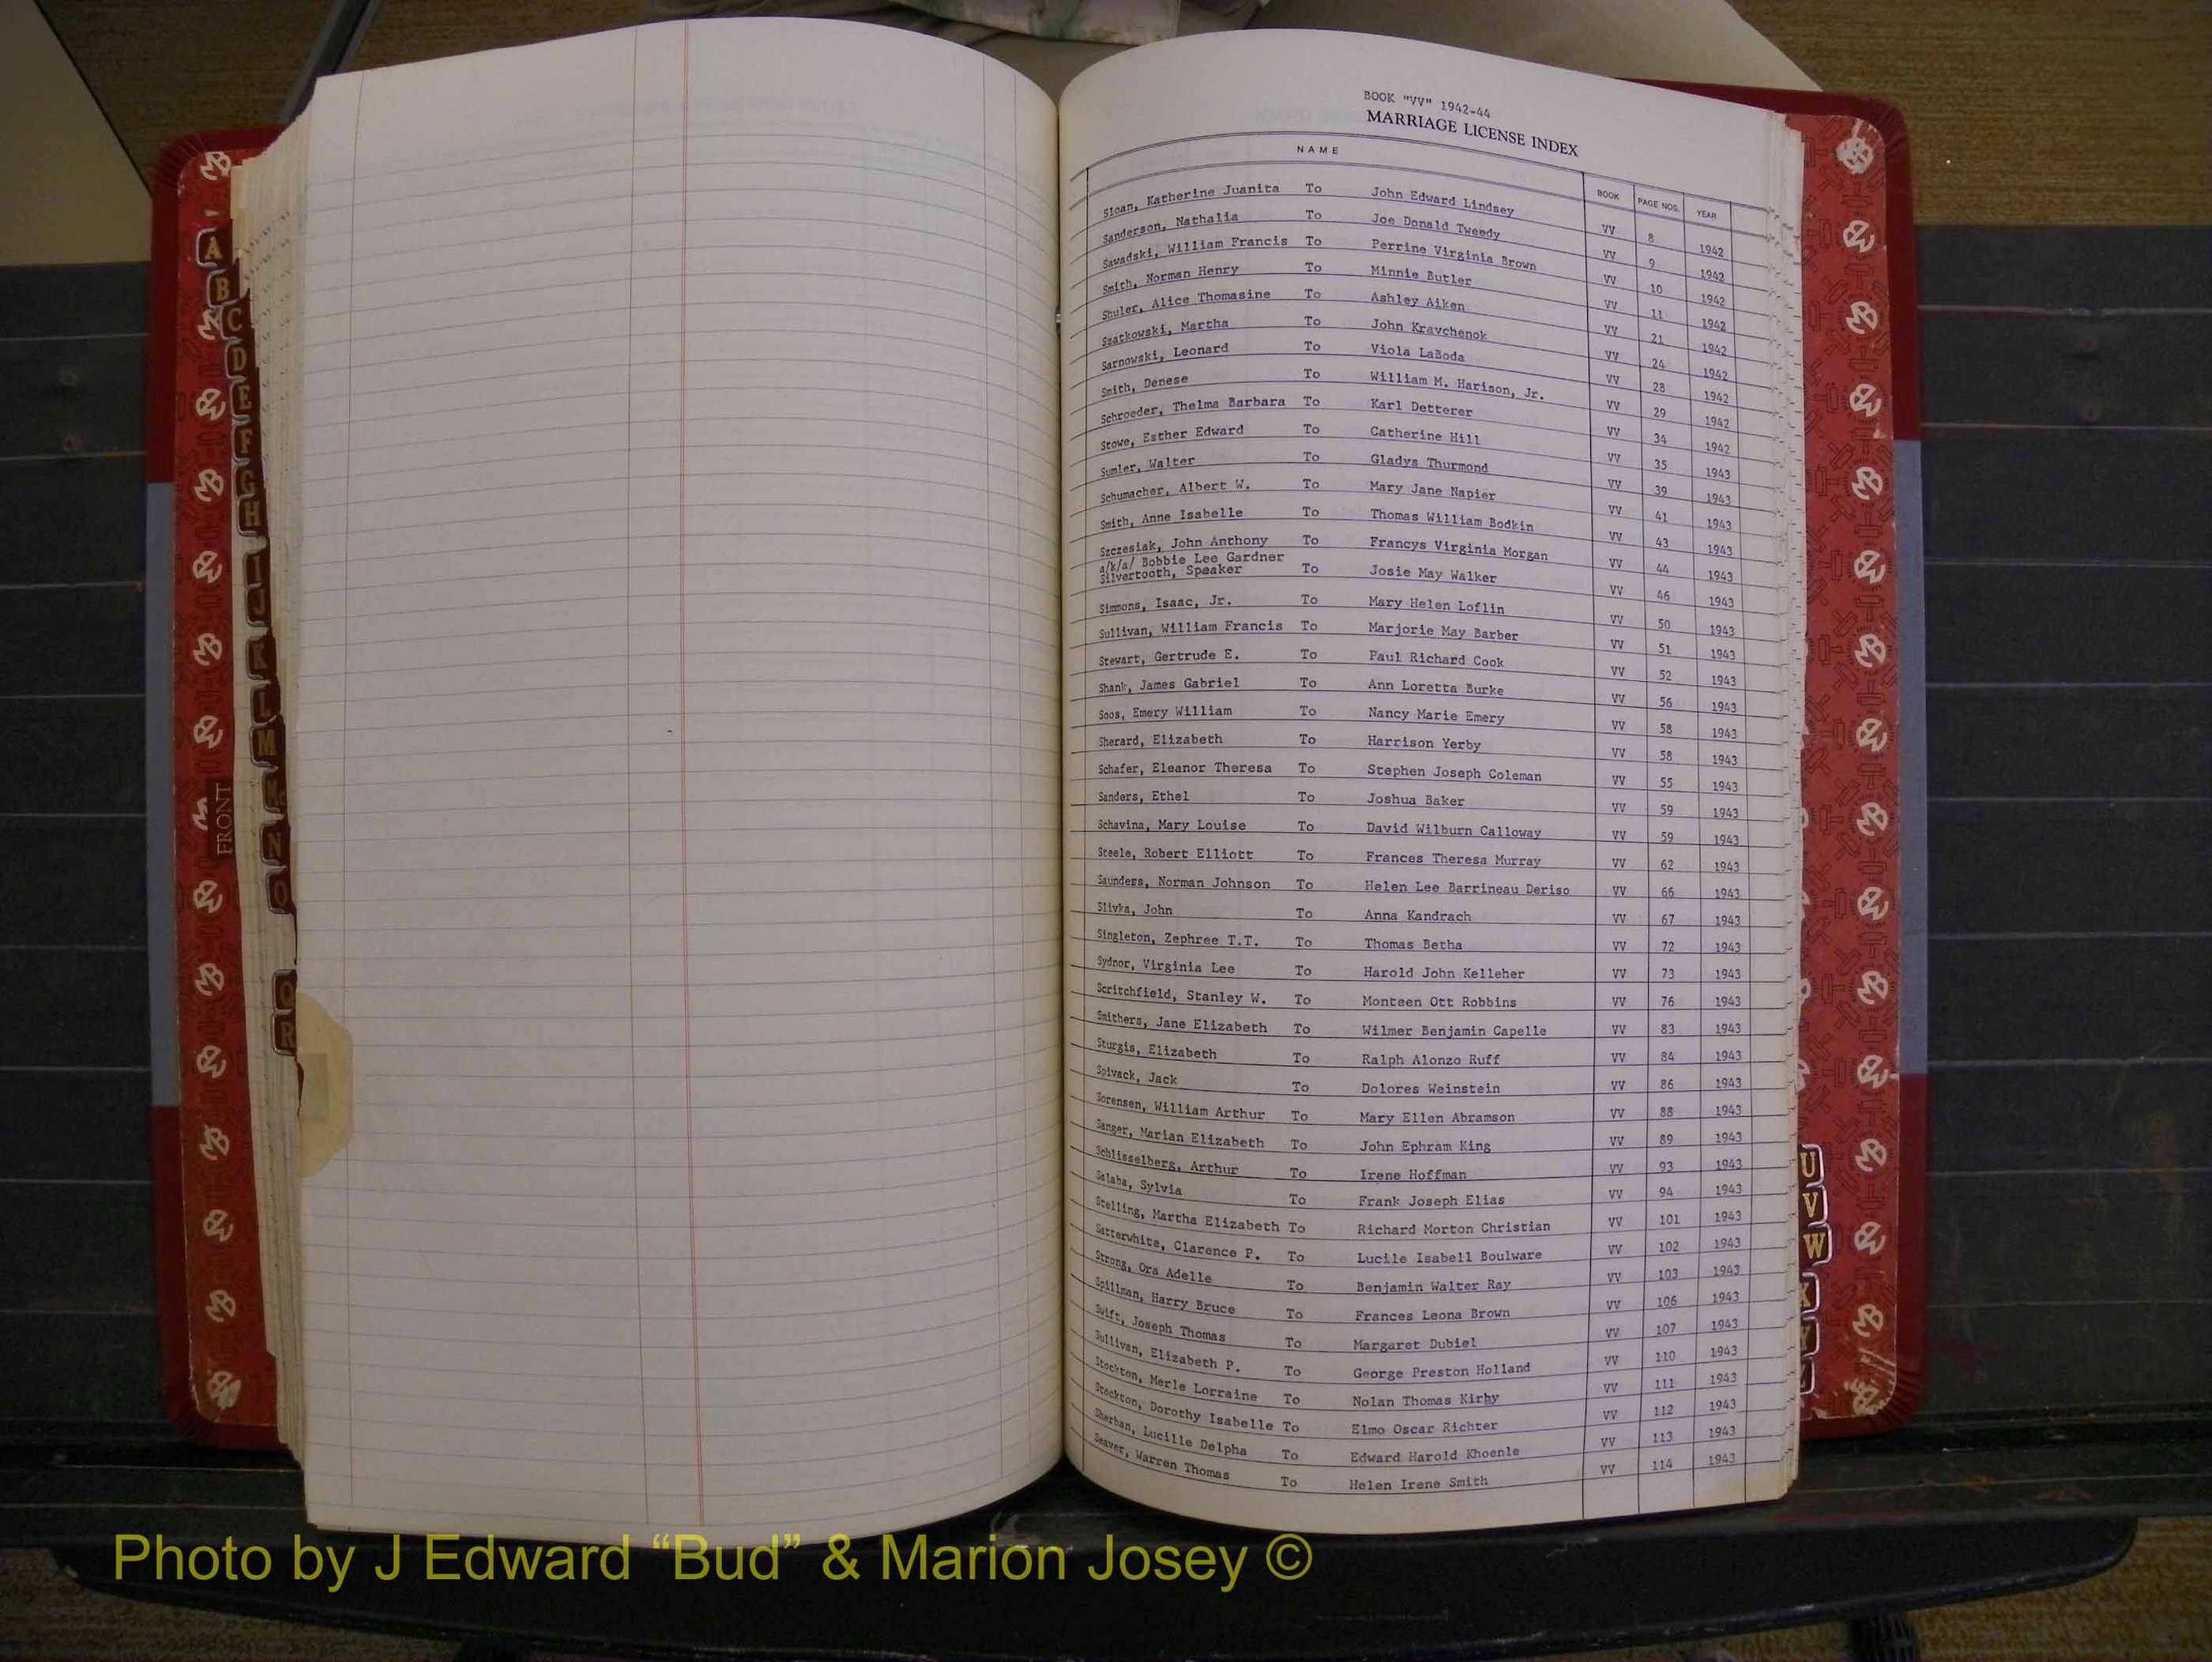 BOOK "VV" 1942-44
MARRIAGE LICENSE INDEX
NAME BOOK PAGE NOS. YEAR
Sloan, Katherine Juanita To John Edward Lindsey VV 8 1942
Sanderson, Nathalia To Joe Donald Tweedy VV 9 1942
Sawadski, William Francis To Perrine Virginia Brown VV 10 1942
Smith, Norman Henry To Minnie Butler VV 11 1942
Shuler, Alice Thomasine To Ashley Aiken VV 21 1942
Szatkowski, Martha To John Kravchenok VV 24 1942
Sarnowski, Leonard To Viola LaBoda VV 28 1942
Smith, Denese To William M. Harison, Jr. VV 29 1942
Schroeder, Thelma Barbara To Karl Detterer VV 34 1942
Stowe, Esther Edward To Catherine Hill VV 35 1943
Sumler, Walter To Gladys Thurmond VV 39 1943
Schumacher, Albert W. To Mary Jane Napier VV 41 1943
Smith, Anne Isabelle To Thomas William Bodkin VV 43 1943
Szczesiak, John Anthony To Francys Virginia Morgan VV 44 1943
a/k/a/ Bobbie Lee Gardner
Silvertooth, Speaker To Josie May Walker VV 46 1943
Simmons, Isaac, Jr. To Mary Helen Loflin VV 50 1943
Sullivan, William Francis To Marjorie May Barber VV 51 1943
Stewart, Gertrude E. To Paul Richard Cook VV 52 1943
Shank, James Gabriel To Ann Loretta Burke VV 56 1943
Soos, Emery William To Nancy Marie Emery VV 58 1943
Sherard, Elizabeth To Harrison Yerby VV 58 1943
Schafer, Eleanor Theresa To Stephen Joseph Coleman VV 55 1943
Sanders, Ethel To Joshua Baker VV 59 1943
Schavina, Mary Louise To David Wilburn Calloway VV 59 1943
Steele, Robert Elliott To Frances Theresa Murray VV 62 1943
Saunders, Norman Johnson To Helen Lee Barrineau Deriso VV 66 1943
Slivka, John To Anna Kandrach VV 67 1943
Singleton, Zephree T.T. To Thomas Betha VV 72 1943
Sydnor, Virginia Lee To Harold John Kelleher VV 73 1943
Scritchfield, Stanley W. To Monteen Ott Robbins VV 76 1943
Smithers, Jane Elizabeth To Wilmer Benjamin Capelle VV 83 1943
Sturgis, Elizabeth To Ralph Alonzo Ruff VV 84 1943
Spivack, Jack To Dolores Weinstein VV 86 1943
Sorensen, William Arthur To Mary Ellen Abramson VV 88 1943
Sanger, Marian Elizabeth To John Ephram King VV 89 1943
Schlisselberg, Arthur To Irene Hoffman VV 93 1943
Salaba, Sylvia To Frank Joseph Elias VV 94 1943
Stelling, Martha Elizabeth To Richard Morton Christian VV 101 1943
Satterwhite, Clarence P. To Lucile Isabell Boulware VV 102 1943
Strong, Ora Adelle To Benjamin Walter Ray VV 103 1943
Spillman, Harry Bruce To Frances Leona Brown VV 106 1943
Swift, Joseph Thomas To Margaret Dubiel VV 107 1943
Sullivan, Elizabeth P. To George Preston Holland VV 110 1943
Stockton, Merle Lorraine To Nolan Thomas Kirby VV 111 1943
Stockton, Dorothy Isabelle To Elmo Oscar Richter VV 112 1943
Sharban, Lucille Delpha To Edward Harold Khoenle VV 113 1943
Seaver, Warren Thomas To Helen Irene Smith VV 114 1943
A
B
C
D
E
F
G
H
I
J
K
L
M
Mc
N
O
Q
R
FRONT
U
V
W
X
Y
Z
Photo by J Edward “Bud” & Marion Josey ©